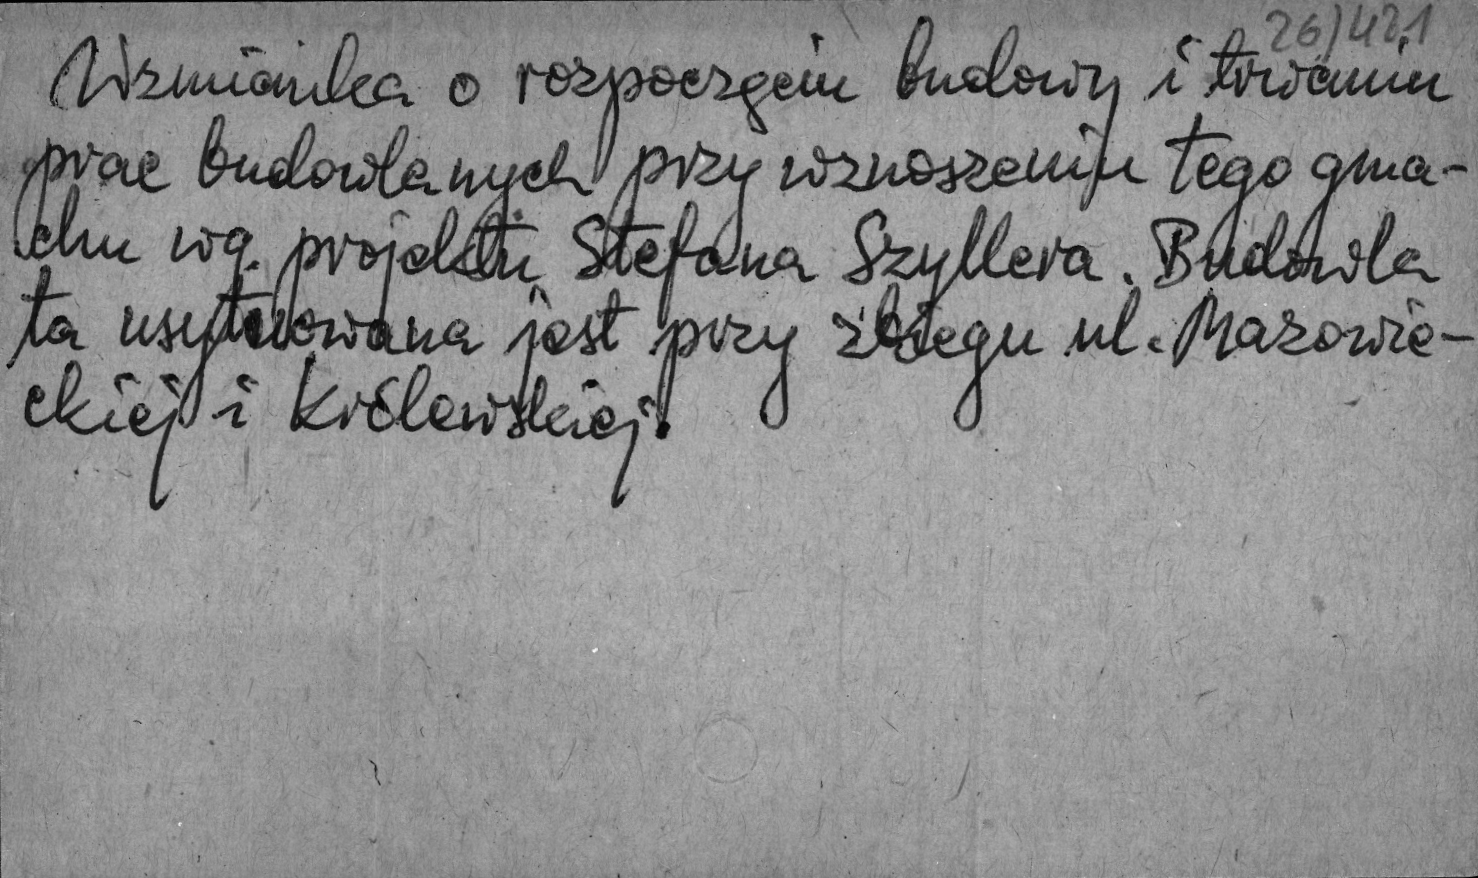 26/421
Wzmianka o rozpoczęciu budowy i trwaniu
prac budowlanych przy wznoszeniu tego gma-
chu wg. projektu Stefana Szyllera. Budowla
ta usytuowana jest przy zbiegu ul. Mazowie-
ckiej i Królewskiej.